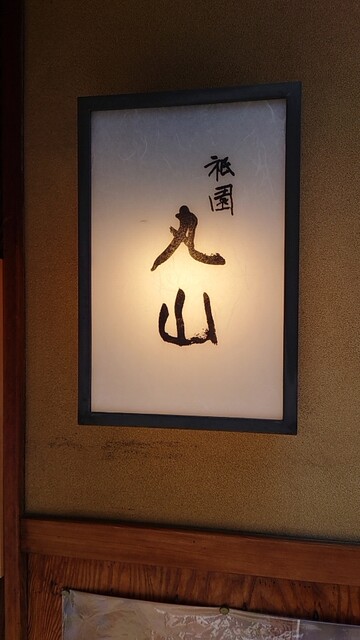 祇園
丸山